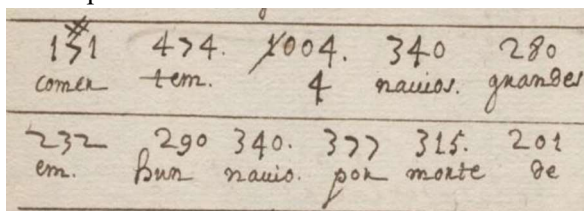 #
131 474. 1004. 340 280
comer tem. 4 nauios. grandes
232 290 340. 377 315. 201
em. hun nauio. por morte de